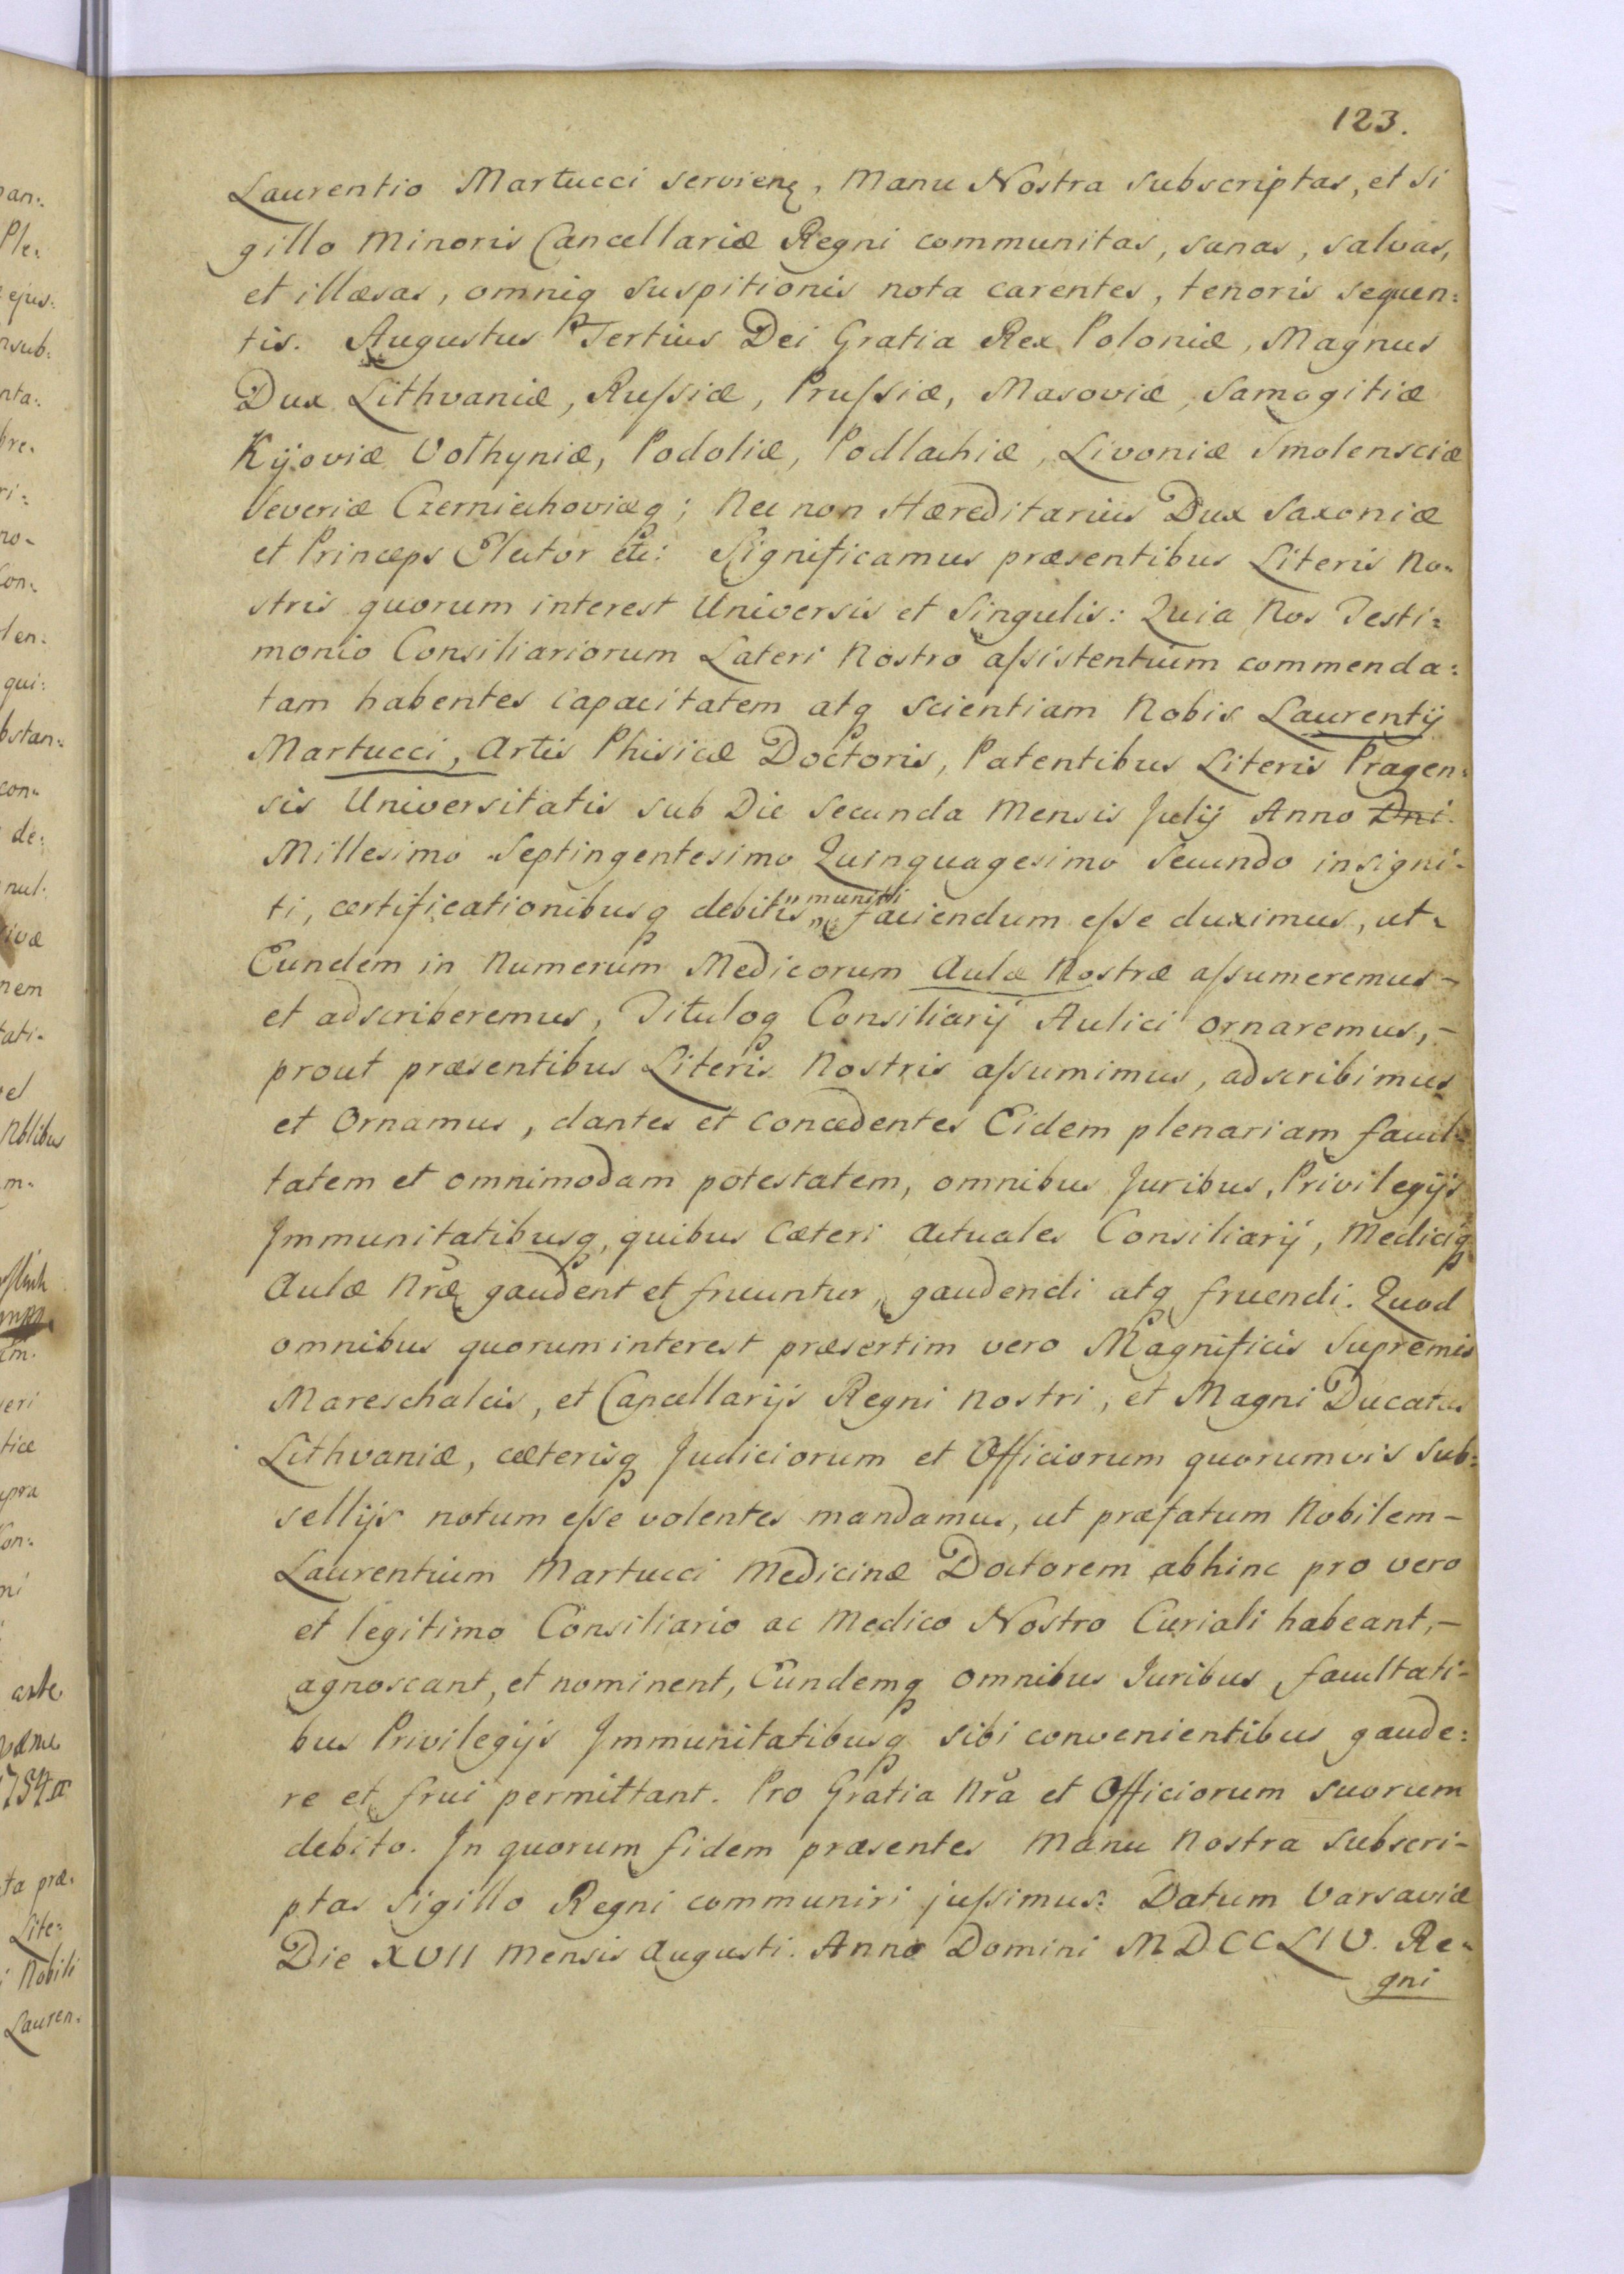 123.
Laurentio Martucci servienq, Manu Nostra subscriptas, et si
gillo Minoris Cancellariæ Regni communitas, sanas, salvas,
et illæsas, omniq suspitionis nota carentes, tenoris sequen:
tis. Augustus Tertius Dei Gratia Rex Poloniæ, Magnus
Dux Lithvaniæ, Russiæ, Prussiæ, Masoviæ, Samogitiæ
Kijoviæ Volhyniæ, Podoliæ, Podlachiæ, Livoniæ Smolensciæ
Severiæ Czerniechoviæq; Nec non Hæreditarius Dux Saxoniæ
et Princeps Elector etc: Significamus præsentibus Literis No-
stris quorum interest Universis et Singulis: Quia Nos Testi:
monio Consiliariorum Lateri Nostro assistentium commenda:
tam habentes capacitatem atq scientiam Nobis Laurentij
Martucci, Artis Phisicæ Doctoris, Patentibus Literis Pragen:
sis Universitatis sub Die Secunda Mensis Julij Anno Dni
Millesimo Septingentesimo Quinquagesimo Secundo insigni-
ti, certificationibusq debitis muniti faciendum esse duximus, ut
Eundem in Numerum Medicorum Aulæ Nostræ assumeremus -
et adscriberemus, Tituloq Consiliarij Aulici ornaremus, -
prout præsentibus Literis Nostris assumimus, adscribimus
et Ornamus, dantes et concedentes Eidem plenariam facul:
tatem et omnimodam potestatem, omnibus Juribus, Privilegijs
Immunitatibusq, quibus Cæteri Actuales Consiliarij, Mediciq
Aulæ Nræ gaudent et fruuntur, gaudendi atq fruendi. Quod
omnibus quorum interest præsertim vero Magnificis Supremis
Mareschalcis, et Cancellarijs Regni Nostri, et Magni Ducatus
Lithvaniæ, cæterisq Judiciorum et Officiorum quorumvis sub:
sellijs notum esse volentes mandamus, ut præfatum Nobilem -
Laurentium Martucci Medicinæ Doctorem abhinc pro vero
et legitimo Consiliario ac Medico Nostro Curiali habeant, -
agnoscant, et nominent, Eundemq omnibus Juribus, facultati-
bus Privilegijs Immunitatibusq sibi convenientibus gaude:
re et frui permittant. Pro Gratia Nra et Officiorum suorum
debito. In quorum fidem præsentes Manu Nostra subscri-
ptas Sigillo Regni communiri jussimus: Datum Varsaviæ
Die XVII Mensis Augusti. Anno Domini MDCCLIV. Re-
gni